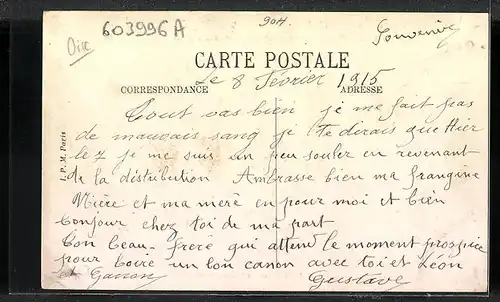 603996A
904
Souvenir
Oise
CARTE POSTALE
Le 8 Février 1915
CORRESPONDANCE
ADRESSE
Tout vas bien je me fait pas
de mauvais sang je te dirais que Hier
le 7 je me suis un peu souler en revenant
de la distribution Ambrasse bien ma frangine
Mière et ma mere en pour moi et bien
bonjour chez toi de ma part
Ton beau-frere qui attend le moment prospice
pour boire un bon canon avec toi et Léon
Gustave
I. P. M. Paris